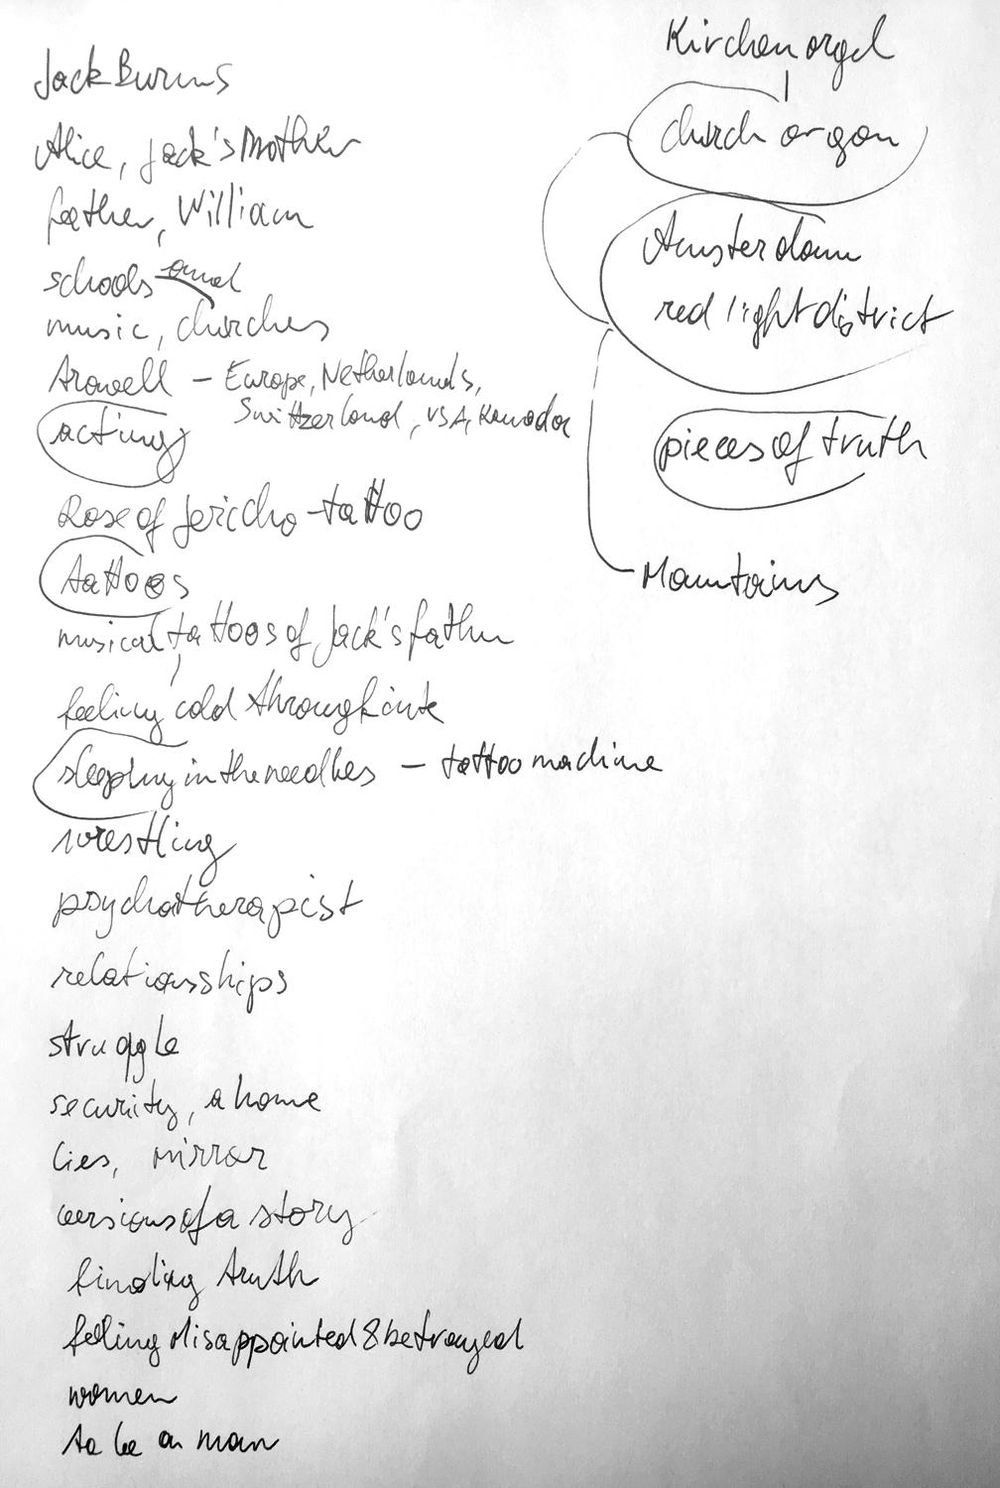 Jack Burns
Alice, Jack's Mother
father, William
schools and
music, churches
Arowell – Europe, Netherlands,
Switzerland, USA, Kanada
acting
Rose of Jericho - tattoo
tattoos
musical tattoos of Jack's father
feeling cold through ink
sleeping in the needles – tattoo machine
wrestling
psychotherapist
relationships
struggle
security, a home
lies, mirror
versions of a story
finding truth
feeling disappointed & betrayed
women
to be a man
Kirchenorgel
church organ
Amsterdam
red light district
pieces of truth
Mountains